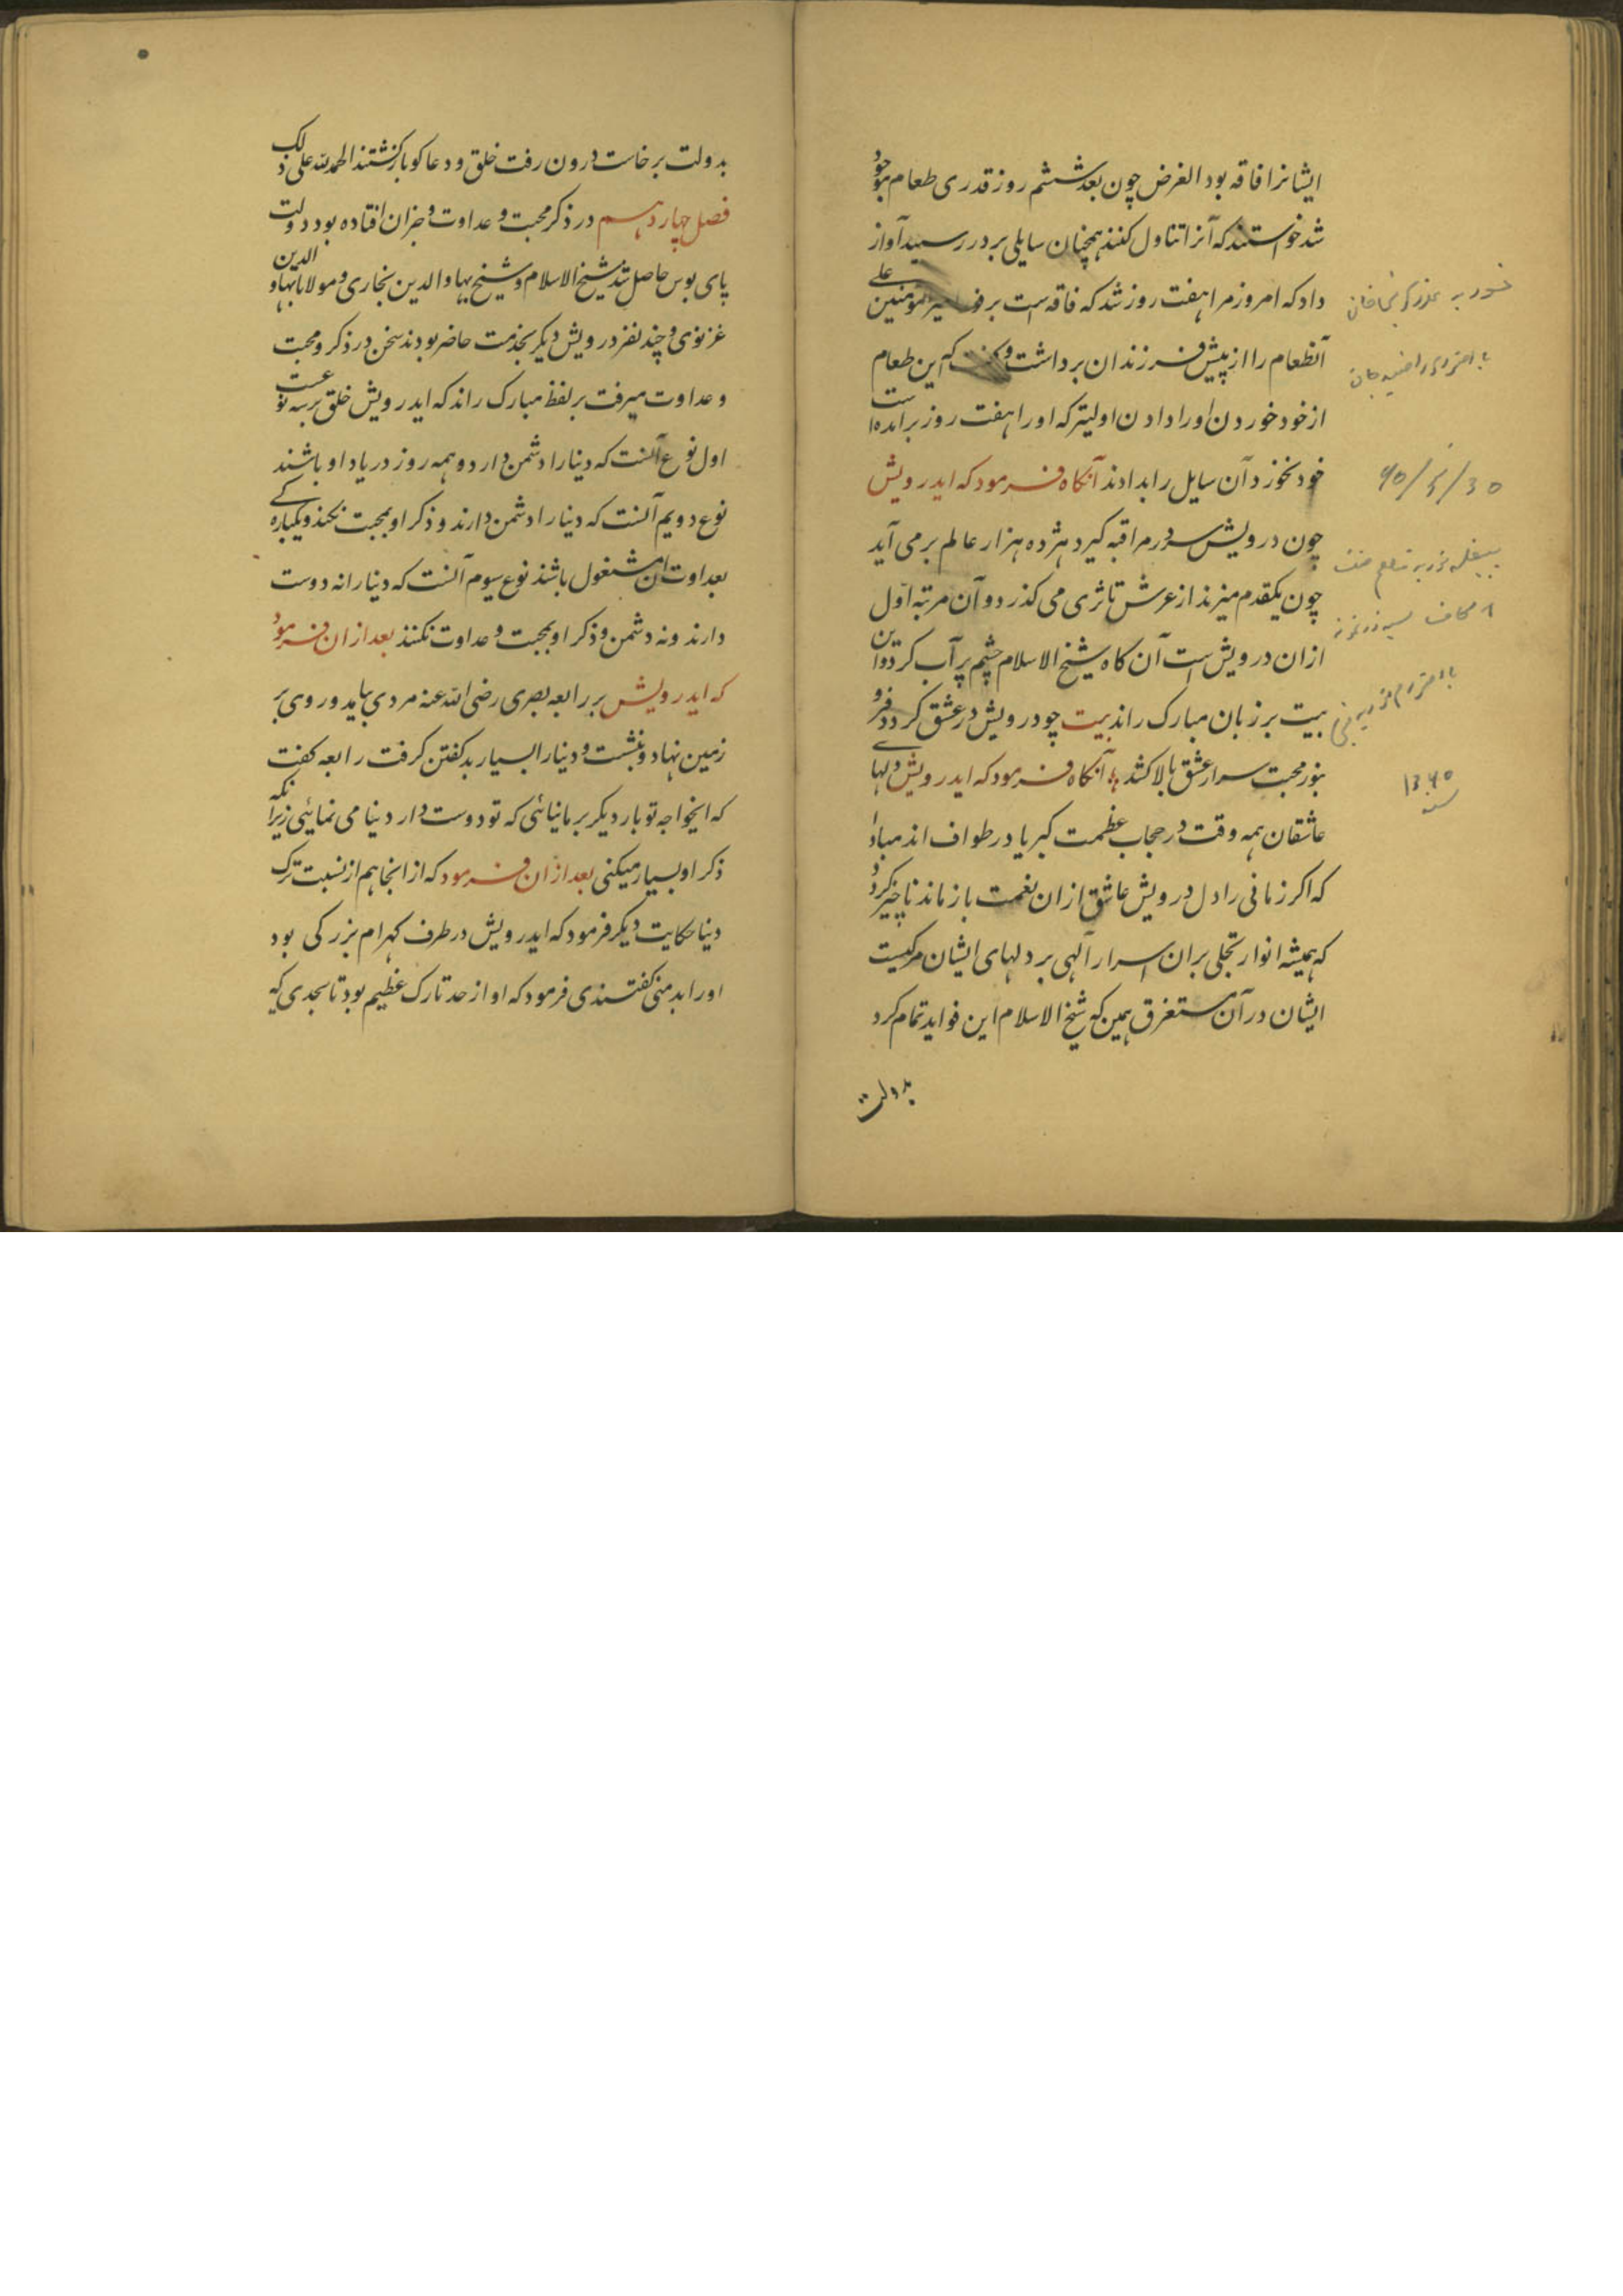 ایشانرا فاقه بود الغرض چون بعد ششم روز قدری طعام موجود
شد خواستند که آنرا تناول کنند همچنان سایلی بر در رسید آواز
داد که امروز مرا هفت روز شد که فاقه است بر فور امیر المومنین علی
آنطعام را از پیش فرزندان برداشت و گفت که این طعام
از خود خوردن اورا دادن اولیتر که اورا هفت روز برآمده است
خود نخورد آن سایل را بدادند آنکاه فرمود که ایدرویش
چون درویش سر در مراقبه کیرد هژده هزار عالم برمی آید
چون یکقدم میزند از عرش تا ثری می کذرد و آن مرتبه اوّل
ازان درویش است آن کاه شیخ الاسلام چشم پر آب کرد و این
بیت بر زبان مبارک راند بیت چو درویش در عشق کردد فرو
بنور محبت سر از عشق بالا کشد آنکاه فرمود که ایدرویش دلهای
عاشقان همه وقت در حجاب عظمت کبریا در طواف اند مبادا
که اکر زمانی را دل درویش عاشق ازان نعمت باز ماند ناچیز کردد
که همیشه انوار تجلی بران اسرار آلهی بر دلهای ایشان
ایشان در آن مستغرق همین که شیخ الاسلام این فواید تمام کرد
بدولت
30/5/90
1390
سنه
بدولت برخاست درون رفت خلق و دعا کو بازکشتند الحمد لله علی ذلک
فصل چهاردهم در ذکر محبت و عداوت و جزان افتاده بود دولت
پای بوس حاصل شد شیخ الاسلام و شیخ بهاو الدین بخاری و مولانا بهاو الدین
غزنوی و چند نفر درویش دیکر بخدمت حاضر بودند سخن در ذکر و محبت
و عداوت میرفت بر لفظ مبارک راند که ایدرویش خلق بر سه نوعست
اول نوع آنست که دنیا را دشمن دارد و همه روز در یاد او باشند
نوع دویم آنست که دنیا را دشمن دارند و ذکر او بمحبت نکنند و یکبارکی
بعداوت آن مشغول باشند نوع سیوم آنست که دنیا را نه دوست
دارند و نه دشمن و ذکر او بمحبت و عداوت نکنند بعد ازان فرمود
که ایدرویش بر رابعه بصری رضی الله عنه مردی بیامد و روی بر
زمین نهاد و بنشست و دنیا را بسیار بد کفتن کرفت رابعه کفت
که ایخواجه تو بار دیکر بر ما نیائی که تو دوست دار دنیا می نمائیی زیرا نکه
ذکر او بسیار میکنی بعد ازان فرمود که از انجا هم از نسبت ترک
دنیا حکایت دیکر فرمود که ایدرویش در طرف کهرام بزرکی بود
اورا بدمنی کفتندی فرمود که او از حد تارک عظیم بود تا بحدی که